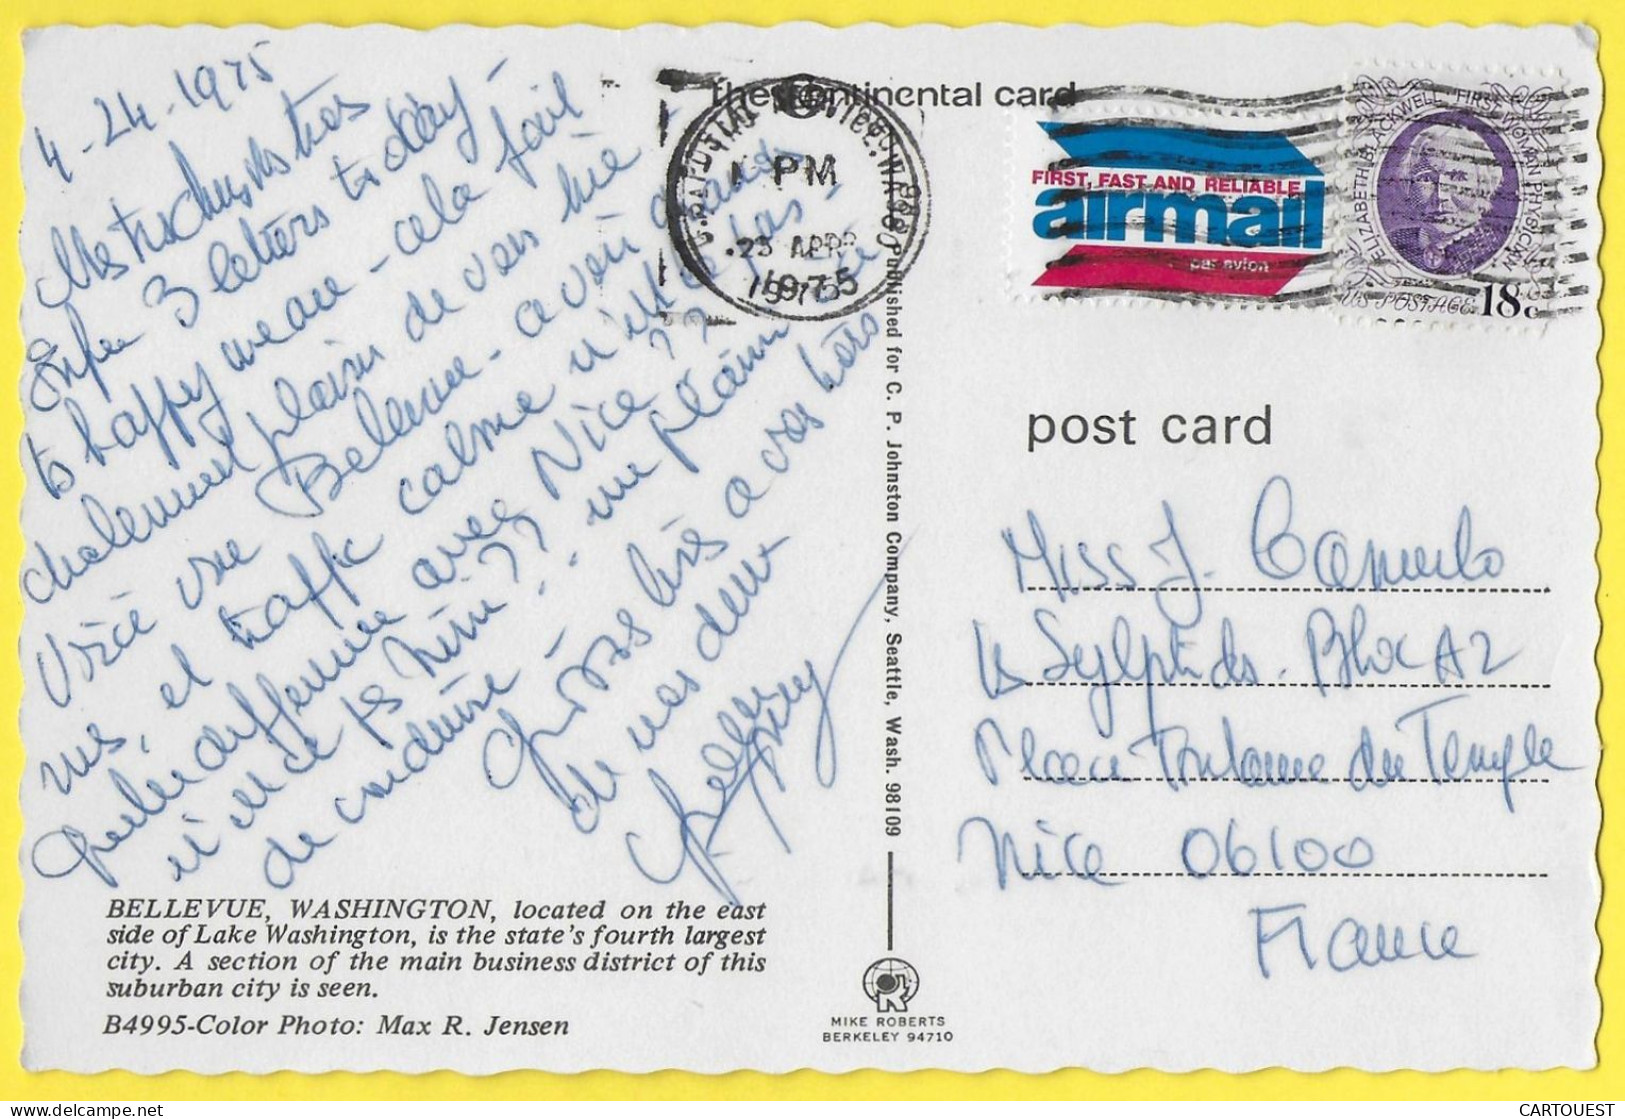 4-24-1975
Mes trochuschs tras
Enfin 3 letters today -
to happy we are - cela fait
chalement plaisir de vous lire -
Bellevue - a voir grands
Voici vue
rues, et traffic calme n'est ce pas -
quelle difference avec Nice??
n'est ce pas Nini?? - une plainir
de conduire -
Gros bises a vos tors
de nos deux
BELLEVUE, WASHINGTON, located on the east
side of Lake Washington, is the state's fourth largest
city. A section of the main business district of this
suburban city is seen.
B4995-Color Photo: Max R. Jensen
the continental card
U.S. POSTAL SERVICE, WA 980
PM
25 APR
1975
Published for C. P. Johnston Company, Seattle, Wash. 98109
MIKE ROBERTS
BERKELEY 94710
FIRST, FAST AND RELIABLE
airmail
par avion
ELIZABETH BLACKWELL FIRST WOMAN PHYSICIAN
US POSTAGE 18c
post card
Miss J. Camerlo
Les Sylphides - Bloc A2
Place Fontaine du Temple
Nice 06100
France
CARTOUEST